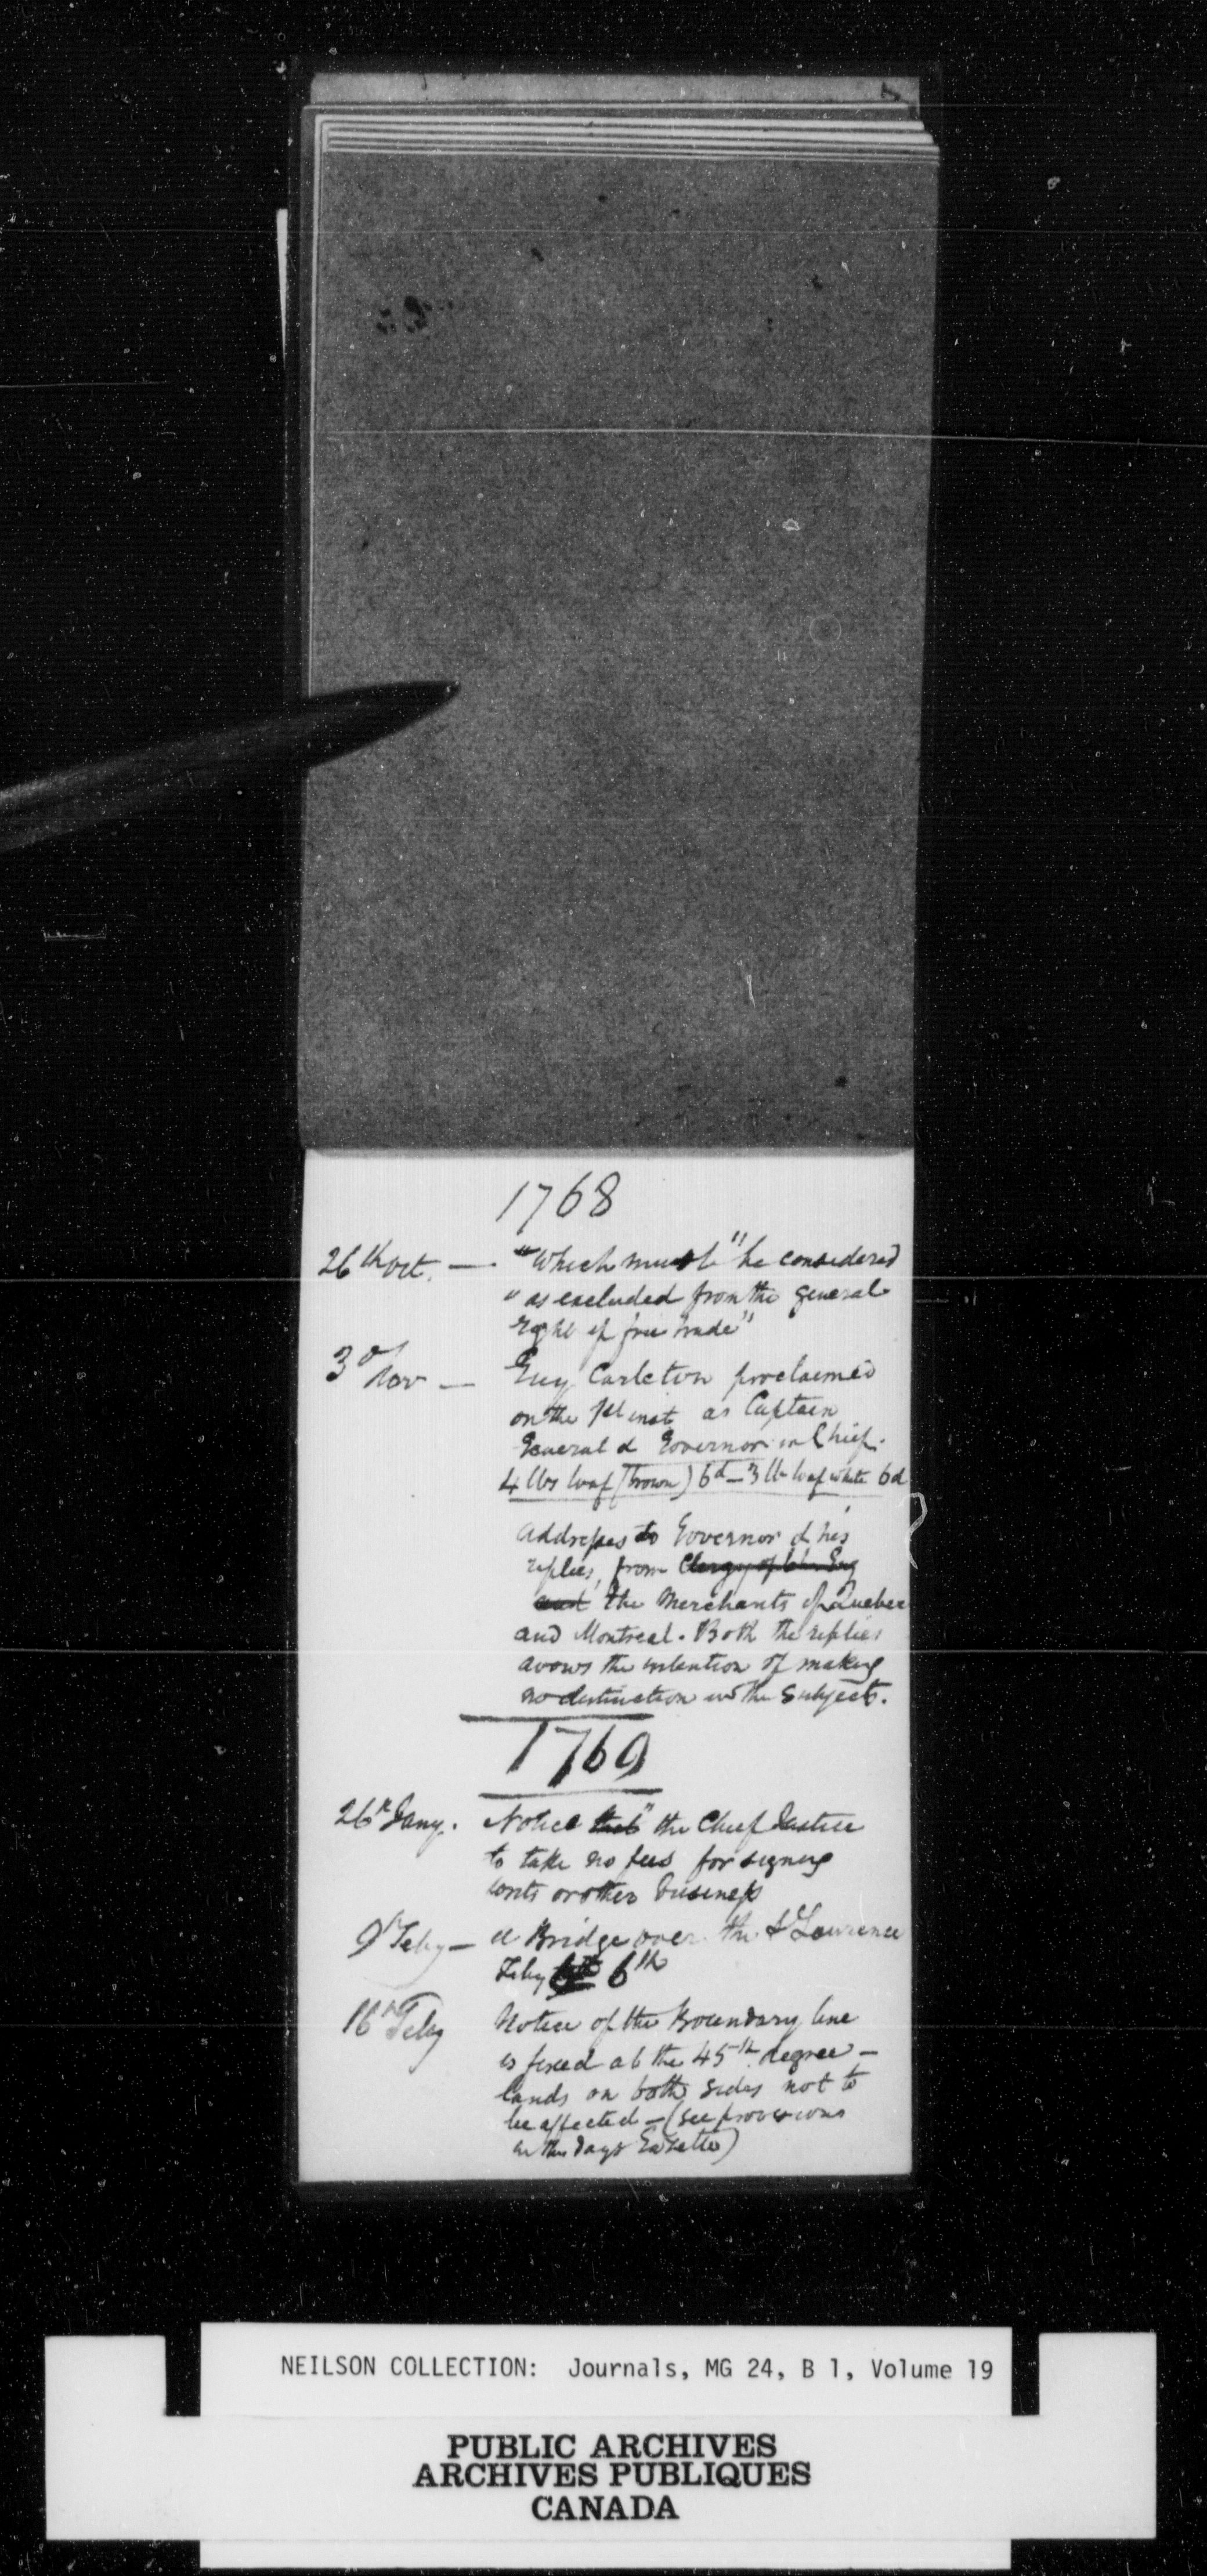 1768
26th Oct. — "Which must "be considered
" as excluded from the general
right of free trade"
3d Nov — Guy Carleton proclaimed
on the 1st inst as Captain
General & Governor in Chief.
4 lbs loaf (brown) 6d — 3 lb loaf white 6d
Addresses to Governor & his
replies, from Clergy of Ch. Eng
and the Merchants of Quebec
and Montreal. Both the replies
avows the intention of making
no distinction in the Subjects.
1769
26th Jany. Notice that" the Chief Justice
to take no fees for signing
writs or other business
9th Feby — a Bridge over the St Lawrence
Feby 6th
16th Feby Notice of the Boundary line
is fixed at the 45th degree —
lands on both sides not to
be affected — (see provisions
in this days Gazette)
NEILSON COLLECTION: Journals, MG 24, B 1, Volume 19
PUBLIC ARCHIVES
ARCHIVES PUBLIQUES
CANADA